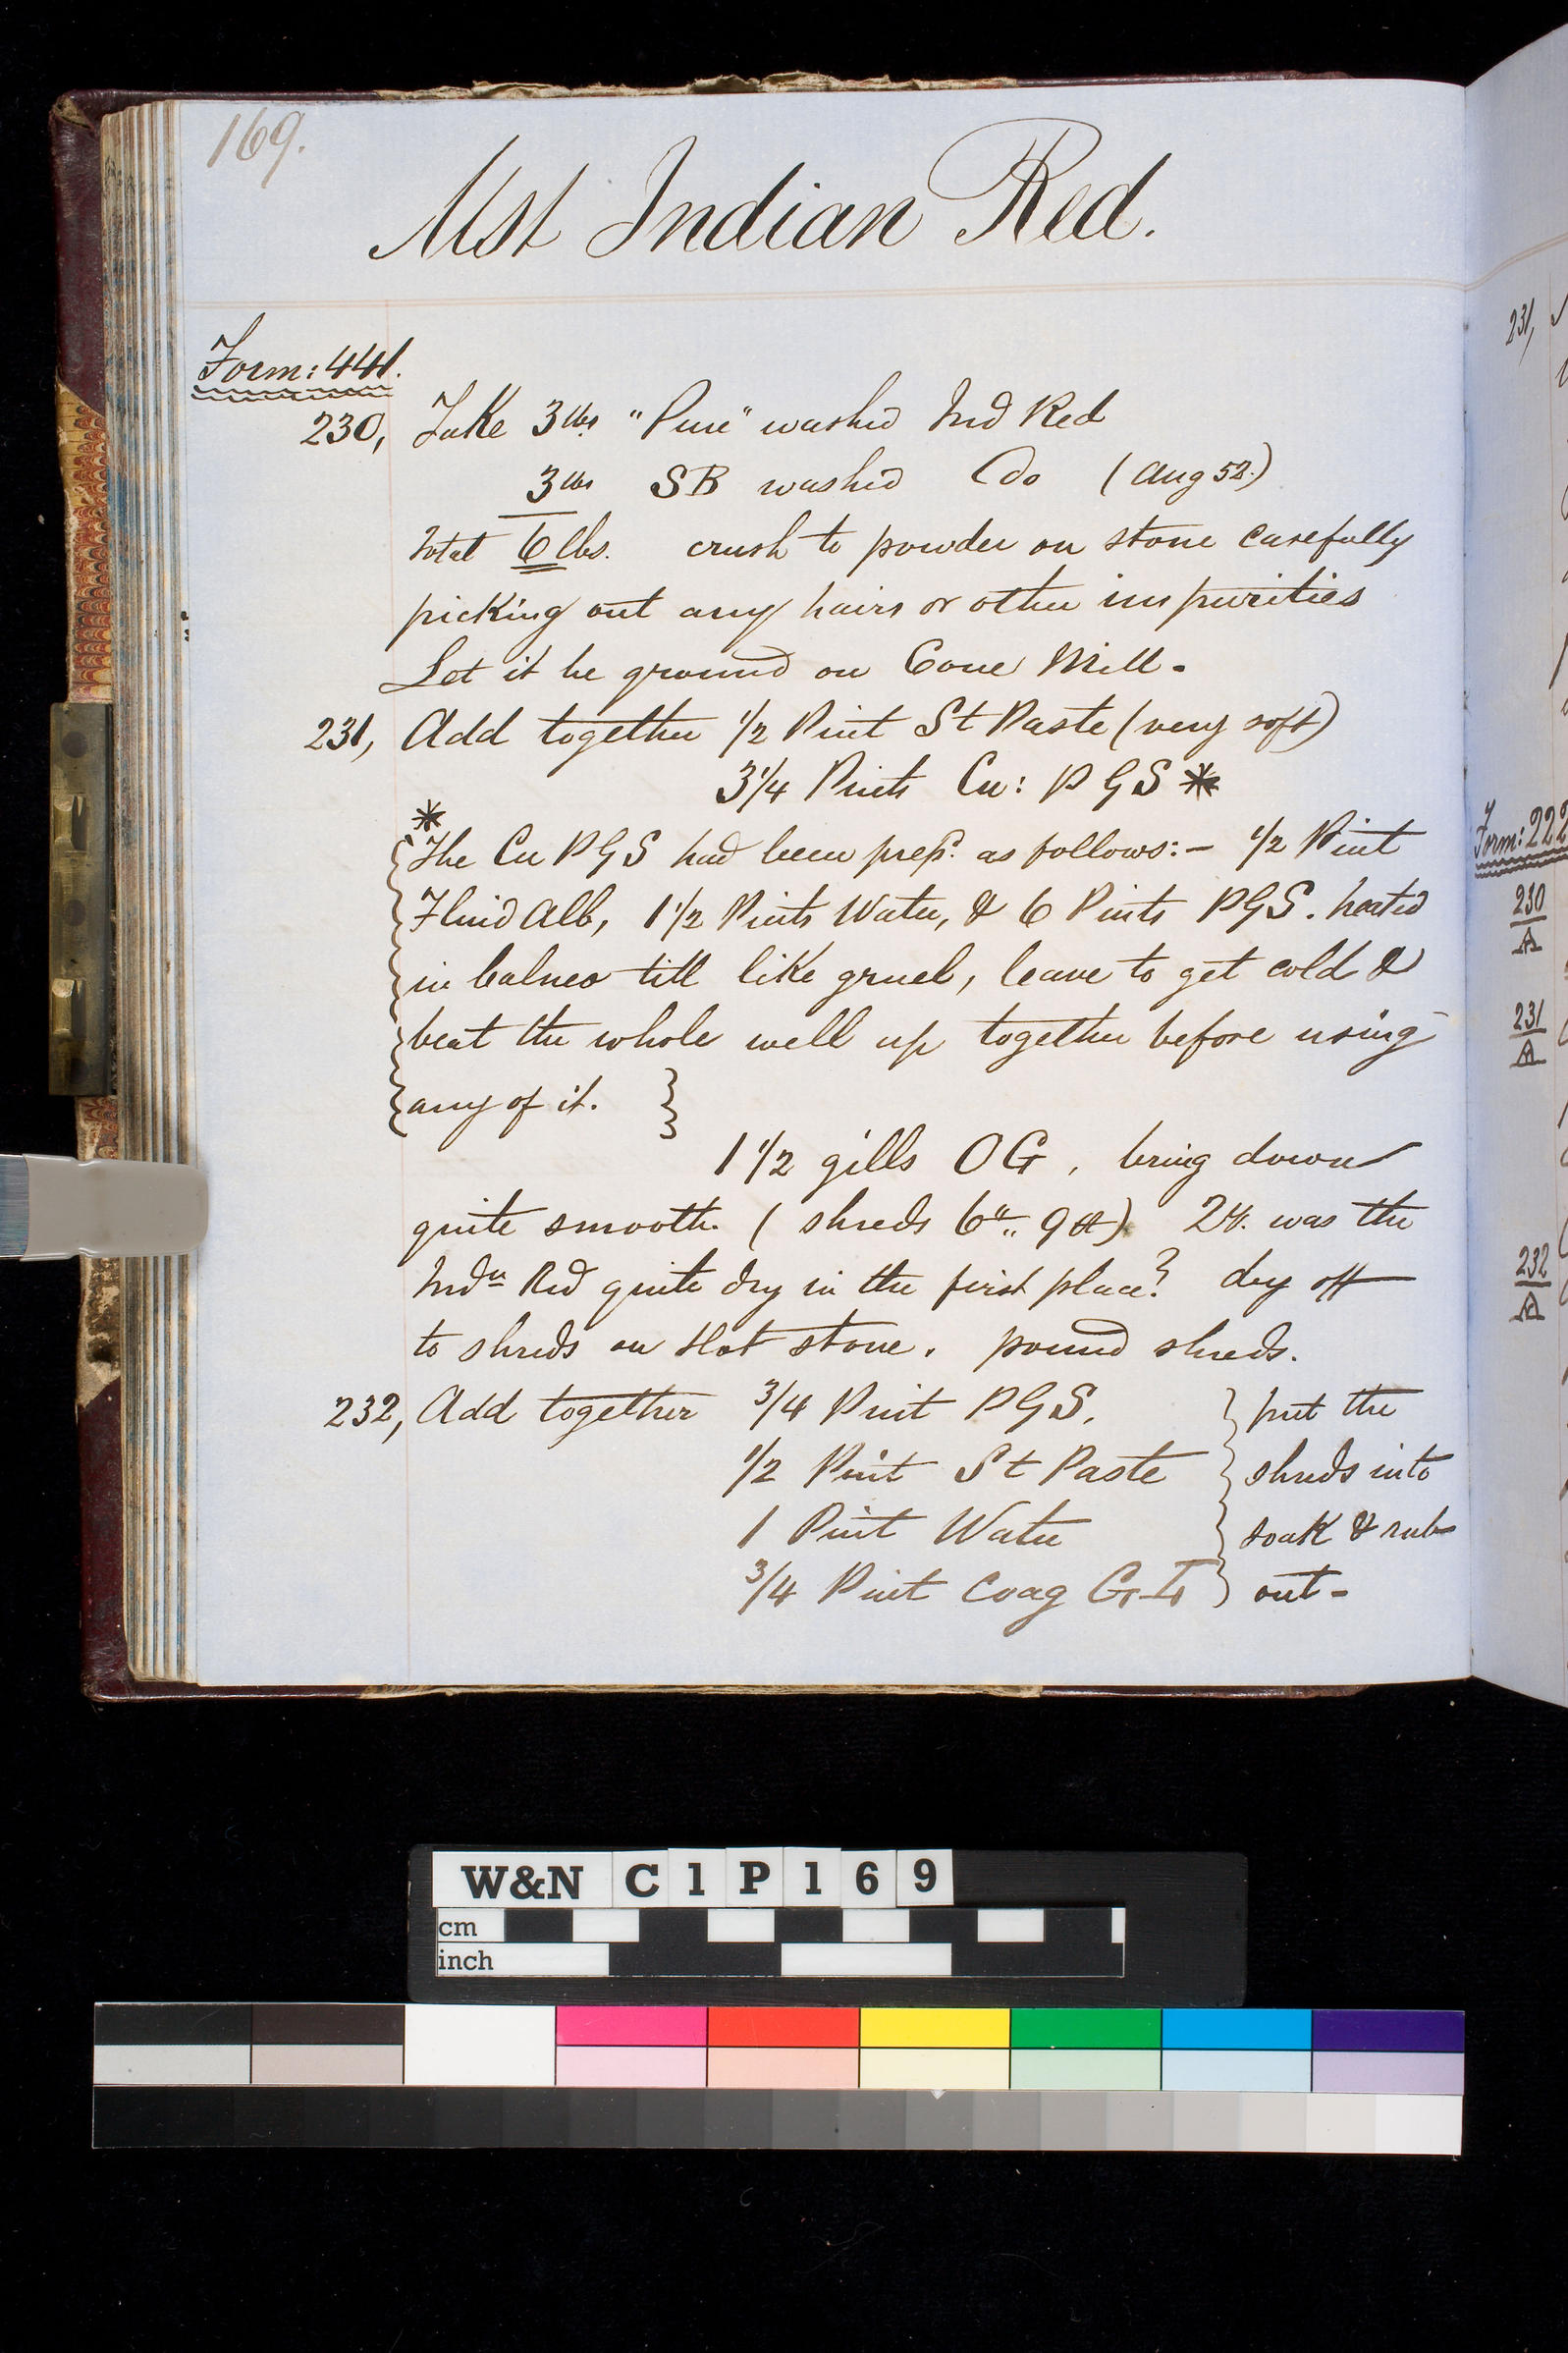 169.
Mst Indian Red.
Form: 441.
230, Take 3 lbs "Pure" washed Ind Red
3 lbs SB washed Do (Aug 52.)
Total 6 lbs. crush to powder on stone carefully
picking out any hairs or other impurities
Let it be ground on Cone Mill.
231, Add together 1/2 Pint St Paste (very soft)
3 1/4 Pints Cu: P G S *
*
The Cu P G S had been prepd. as follows:- 1/2 Pint
Fluid Alb, 1 1/2 Pints Water, & 6 Pints PGS. heated
in balneo till like gruel, leave to get cold &
beat the whole well up together before using
any of it.
1 1/2 gills OG, bring down
quite smooth. (shreds 6 lb .. 9 ) Qy. was the
Indn Red quite dry in the first place? dry off
to shreds on Hot stone. pound shreds.
232, Add together 3/4 Pint PGS. put the
1/2 Pint St Paste shreds into
1 Pint Water soak & rub
3/4 Pint Coag G out-
231,
Form: 222
230
A
231
A
232
A
W&N C1P169
cm
inch